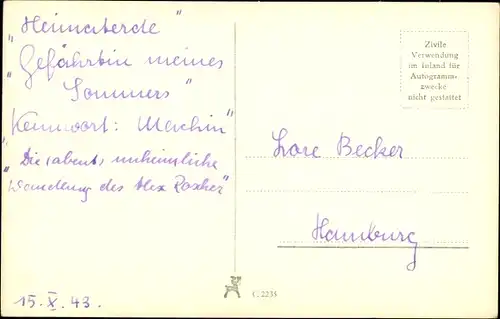 „Heimaterde"
„Gefährtin meines
Sommers"
Kennwort: Machin"
„Die (abent, unheimliche
Wandlung des Alex Roscher"
15. X. 43.
Zivile
Verwendung
im Inland für
Autogramm-
zwecke
nicht gestattet
Lore Becker
Hamburg
C 2235